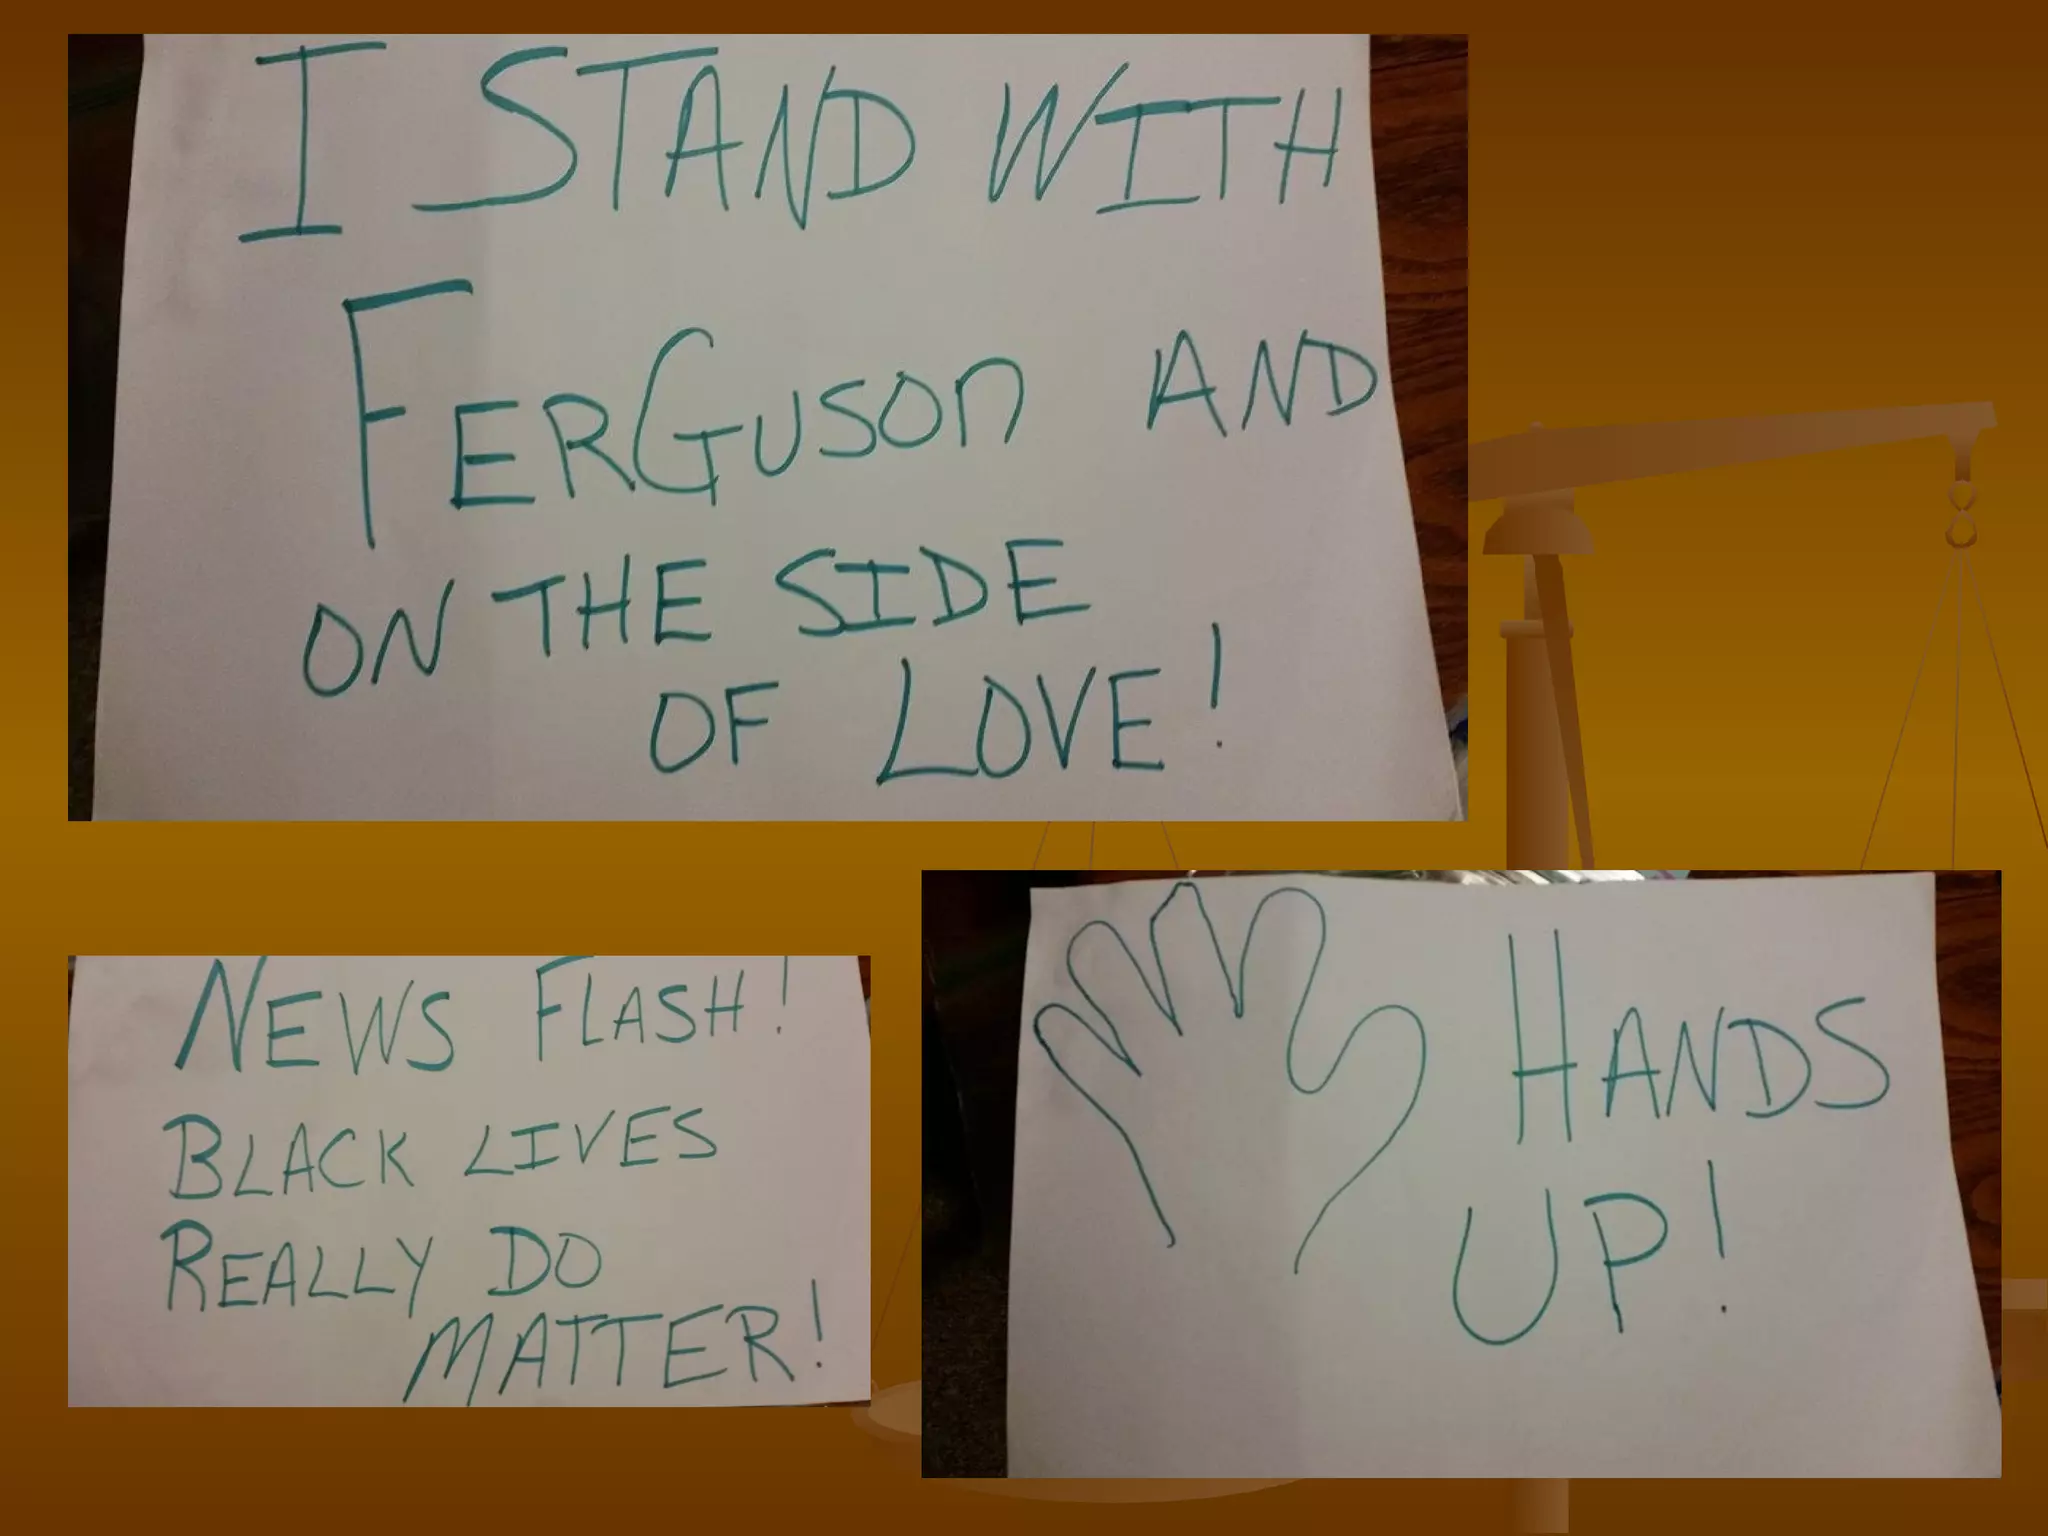 I STAND WITH
FERGUSON AND
ON THE SIDE
OF LOVE!
NEWS FLASH!
BLACK LIVES
REALLY DO
MATTER!
HANDS
UP!